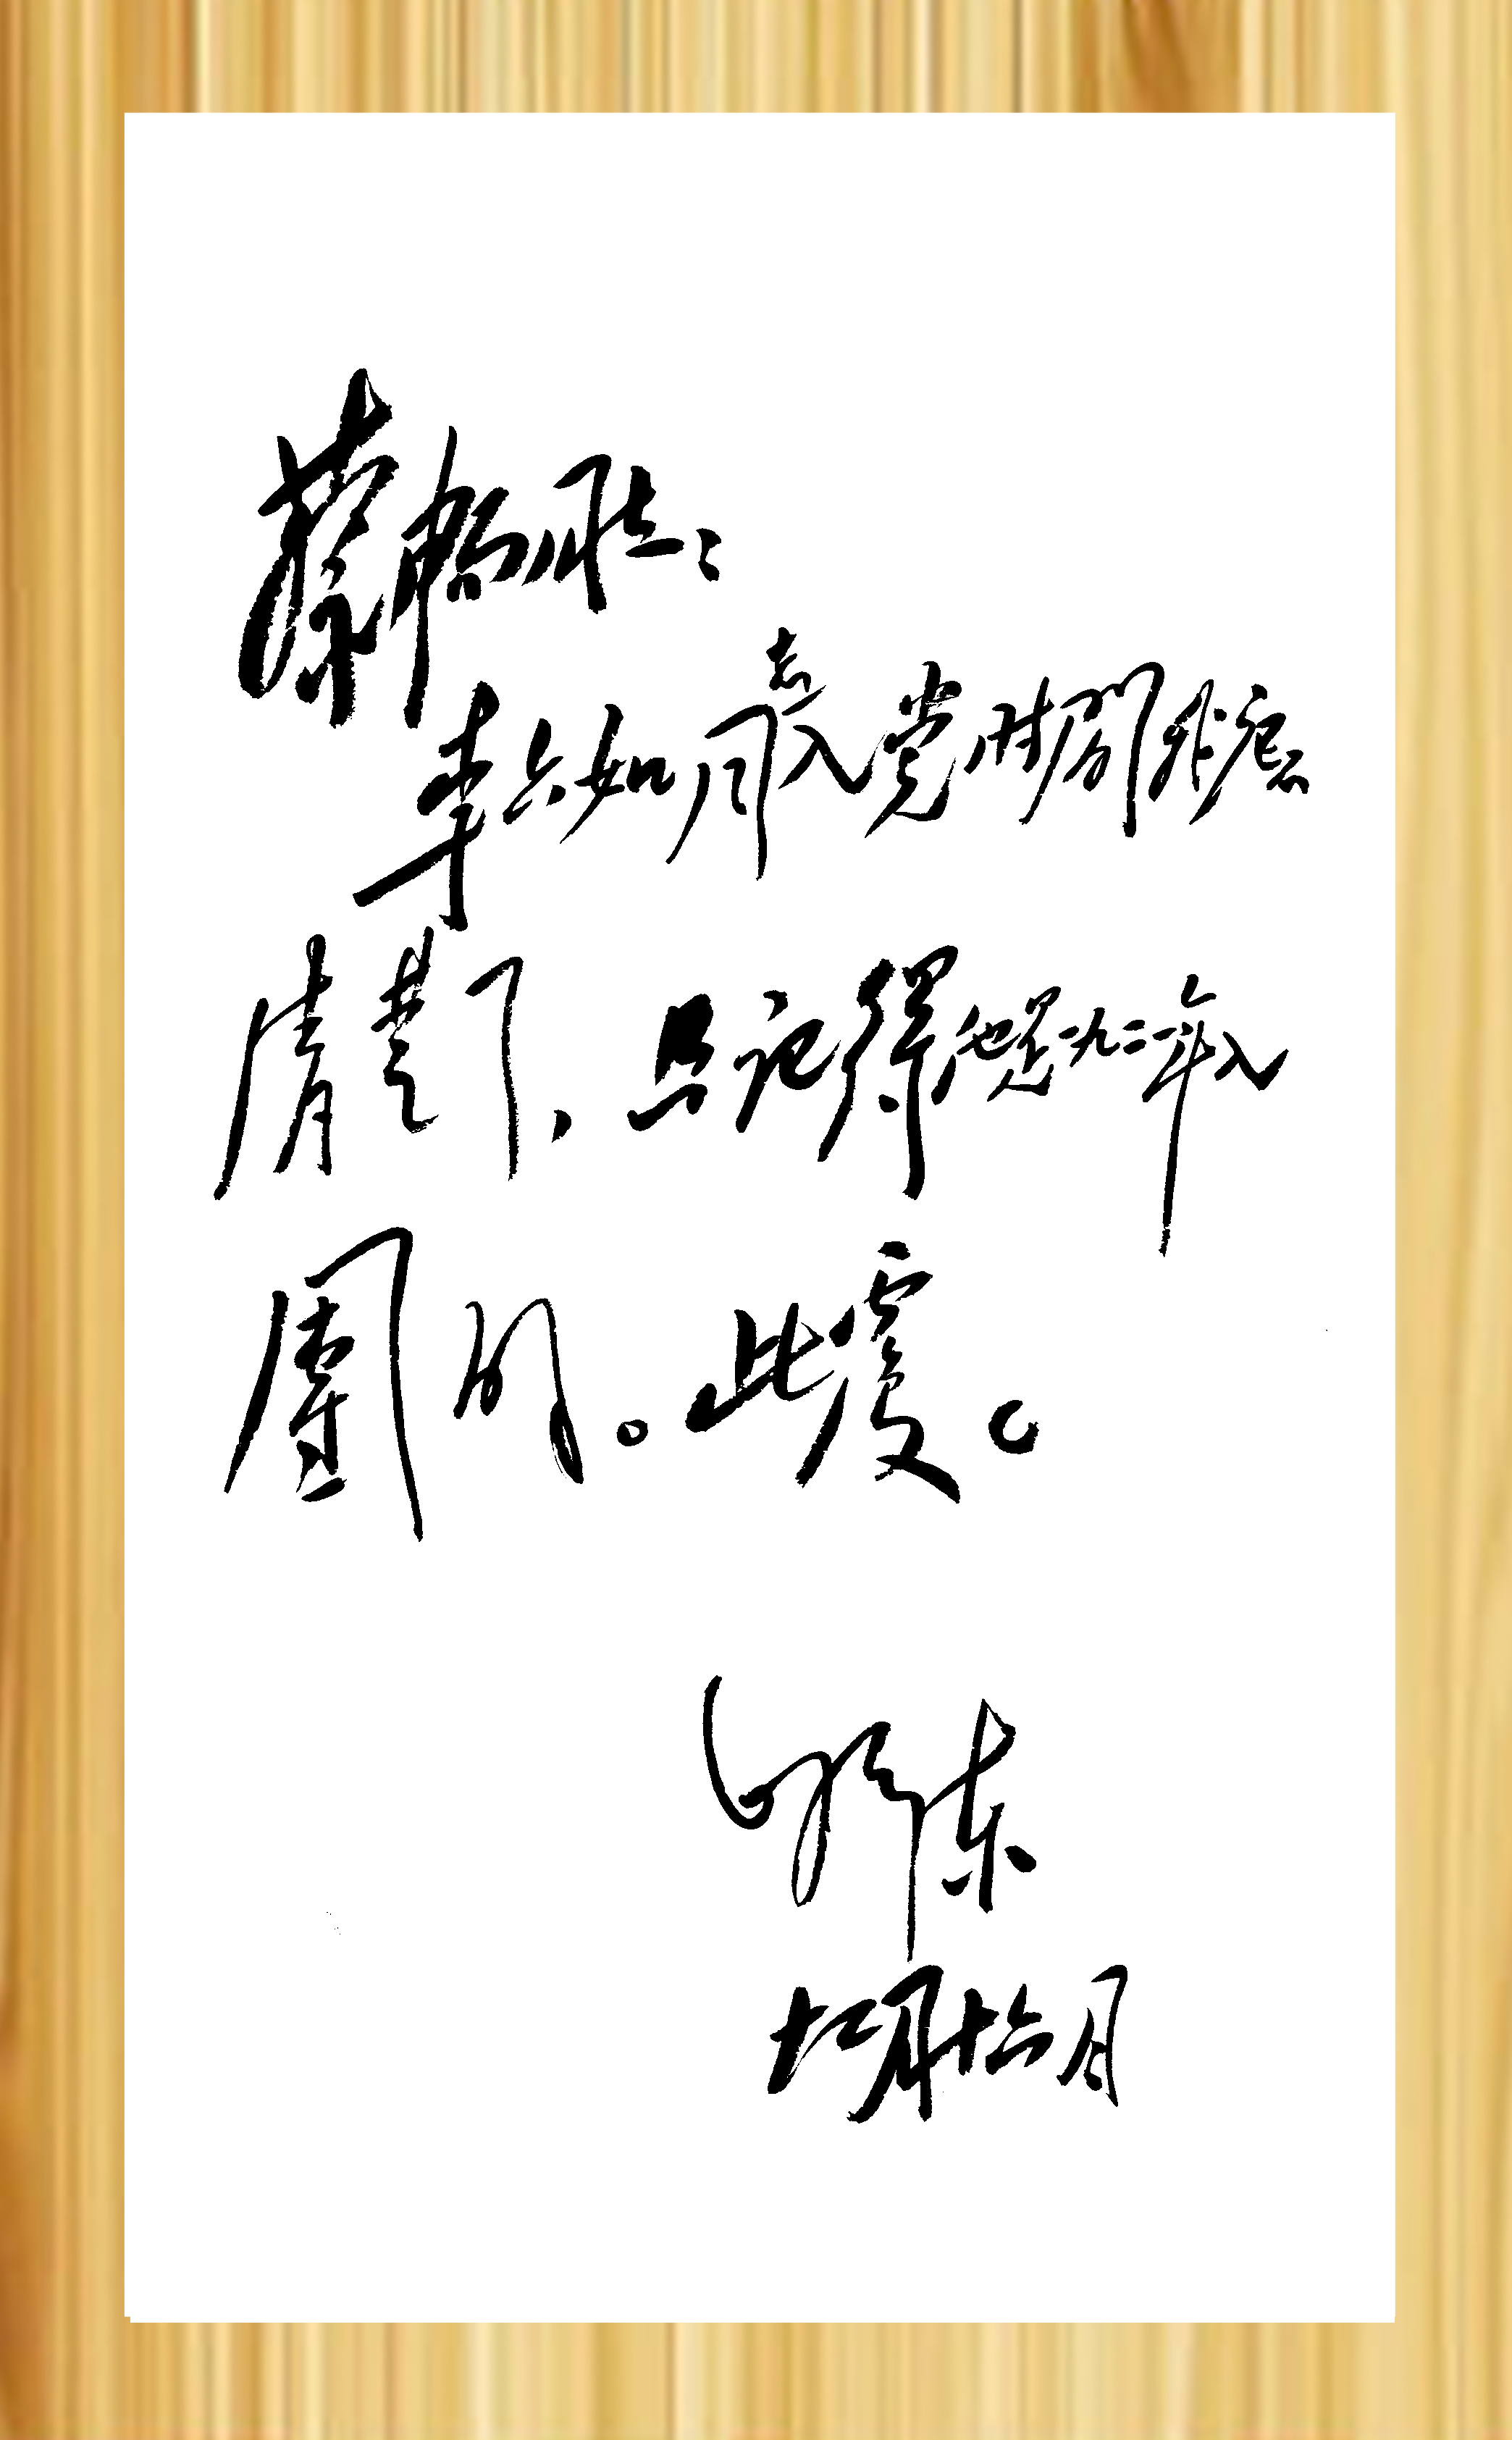 蔡暢同志：
李六如同志入党时間我记不
清楚了、只记得他是一九二一年入
團的。此覆。
毛泽东
十二月十六日